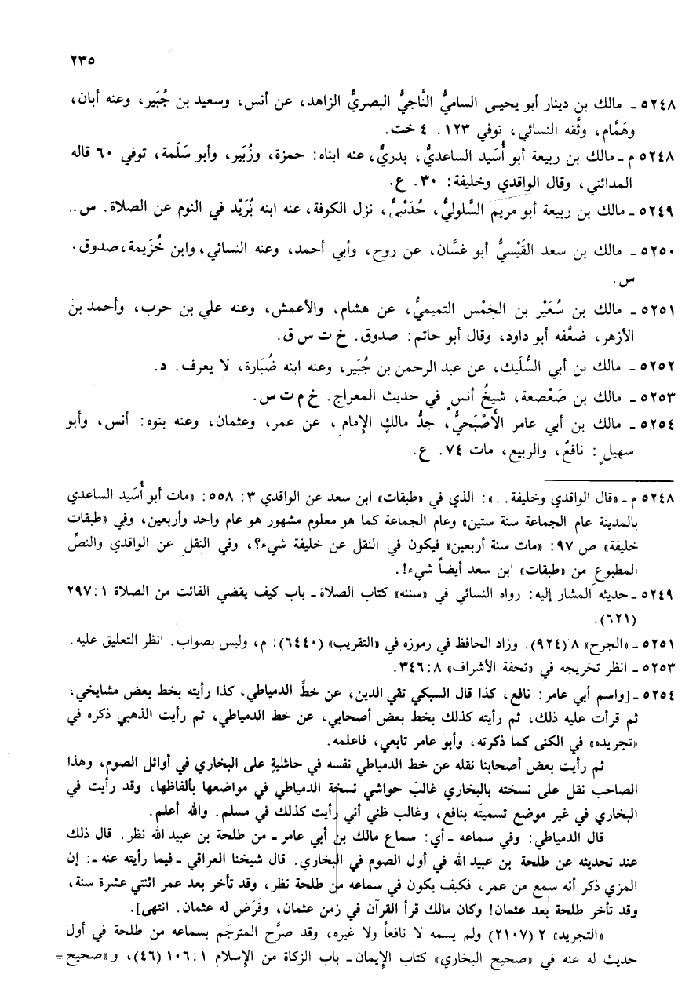 ٢٣٥
٥٢٤٨ ـ مالك بن دينار أبو يحيى الساميُّ النَّاجيُّ البصريُّ الزاهد، عن أنس، وسعيد بن جُبَير، وعنه أبان،
وهَمَّام، وثَّقه النسائي، توفي ١٢٣. ٤ خت.
٥٢٤٨ م ـ مالك بن ربيعة أبو أُسَيد الساعديُّ، بدريٌّ، عنه ابناه: حمزة، وزُبَير، وأبو سَلَمة، توفي ٦٠ قاله
المدائني، وقال الواقدي وخليفة: ٣٠. ع.
٥٢٤٩ ـ مالك بن ربيعة أبو مريم السَّلوليُّ، حُدَيْبيٌّ، نزل الكوفة، عنه ابنه بُرَيْد في النوم عن الصلاة. س.
٥٢٥٠ ـ مالك بن سعد القَيْسيُّ أبو غسَّان، عن روح، وأبي أحمد، وعنه النسائي، وابن خُزَيمة، صدوق.
س.
٥٢٥١ ـ مالك بن سُعَيْر بن الخِمْس التميميُّ، عن هشام، والأعمش، وعنه علي بن حرب، وأحمد بن
الأزهر، ضعَّفه أبو داود، وقال أبو حاتم: صدوق. خ ت س ق.
٥٢٥٢ ـ مالك بن أبي السُّلَيك، عن عبد الرحمن بن جُبَير، وعنه ابنه ضُبَارة، لا يعرف. د.
٥٢٥٣ ـ مالك بن صَعْصعة، شيخُ أنسٍ في حديث المعراج. خ م ت س.
٥٢٥٤ ـ مالك بن أبي عامر الأَصْبَحيُّ، جدُّ مالكٍ الإمام، عن عمر، وعثمان، وعنه بنوه: أنس، وأبو
سهيل: نافعٌ، والربيع، مات ٧٤. ع.
٥٢٤٨ م ـ «قال الواقدي وخليفة..»: الذي في «طبقات» ابن سعد عن الواقدي ٣: ٥٥٨: «مات أبو أُسَيد الساعدي
بالمدينة عام الجماعة سنة ستين» وعام الجماعة كما هو معلوم مشهور هو عام واحد وأربعين، وفي «طبقات
خليفة» ص ٩٧: «مات سنة أربعين» فيكون في النقل عن خليفة شيء؟، وفي النقل عن الواقدي والنصِّ
المطبوع من «طبقات» ابن سعد أيضاً شيء!.
٥٢٤٩ ـ حديثه المشار إليه: رواه النسائي في «سننه» كتاب الصلاة ـ باب كيف يقضي الفائت من الصلاة ١: ٢٩٧
(٦٢١).
٥٢٥١ ـ «الجرح» ٨ (٩٢٤). وزاد الحافظ في رموزه في «التقريب» (٦٤٤٠): م، وليس بصواب. انظر التعليق عليه.
٥٢٥٣ ـ انظر تخريجه في «تحفة الأشراف» ٨: ٣٤٦.
٥٢٥٤ ـ [واسم أبي عامر: نافع، كذا قال السبكي تقي الدين، عن خطِّ الدمياطي، كذا رأيته بخط بعض مشايخي،
ثم قرأت عليه ذلك، ثم رأيته كذلك بخط بعض أصحابي، عن خط الدمياطي، ثم رأيت الذهبي ذكره في
«تجريده» في الكنى كما ذكرته، وأبو عامر تابعي، فاعلمه.
ثم رأيت بعض أصحابنا نقله عن خط الدمياطي نفسه في حاشيةٍ على البخاري في أوائل الصوم، وهذا
الصاحب نقل على نسخته بالبخاري غالبَ حواشي نسخة الدمياطي في مواضعها بألفاظها، وقد رأيت في
البخاري في غير موضع تسميتَه بنافع، وغالب ظني أني رأيت كذلك في مسلم. والله أعلم.
قال الدمياطي: وفي سماعه ـ أي: سماع مالك بن أبي عامر ـ من طلحة بن عبيد الله نظر. قال ذلك
عند تحديثه عن طلحة بن عبيد الله في أول الصوم في البخاري. قال شيخنا العراقي ـ فيما رأيته عنه ـ: إن
المزي ذكر أنه سمع من عمر، فكيف يكون في سماعه من طلحة نظر، وقد تأخر بعد عمر اثنتي عشرة سنة،
وقد تأخر طلحة بعد عثمان! وكان مالك قرأ القرآن في زمن عثمان، وفَرَض له عثمان. انتهى].
«التجريد» ٢ (٢١٠٧) ولم يسمه لا نافعاً ولا غيره، وقد صرَّح المترجَم بسماعه من طلحة في أول
حديث له عنه في «صحيح البخاري» كتاب الإيمان ـ باب الزكاة من الإسلام ١: ١٠٦ (٤٦)، و«صحيح =